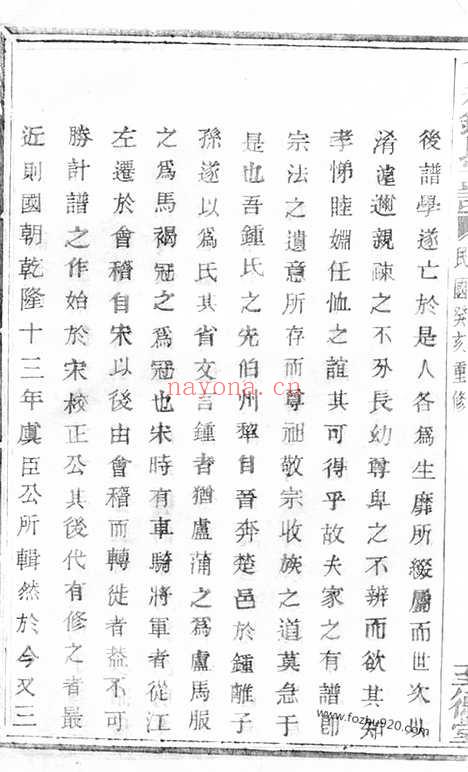 民國癸亥重修
後譜學遂亡於是人各爲生靡所綴屬而世次以
淆混邇親疎之不分長幼尊卑之不辨而欲其知
孝悌睦婣任恤之誼其可得乎故夫家之有譜卽
宗法之遺意所存而尊祖敬宗收族之道莫急于
是也吾鍾氏之先伯州犂自晉奔楚邑於鍾離子
孫遂以爲氏其省文言鍾者猶盧蒲之爲盧馬服
之爲馬褐冠之爲冠也宋時有車騎將軍者從江
左遷於會稽自宋以後由會稽而轉徙者益不可
勝計譜之作始於宋校正公其後代有修之者最
近則國朝乾隆十三年虞臣公所輯然於今又三
nayona.cn
www.fozhu920.com